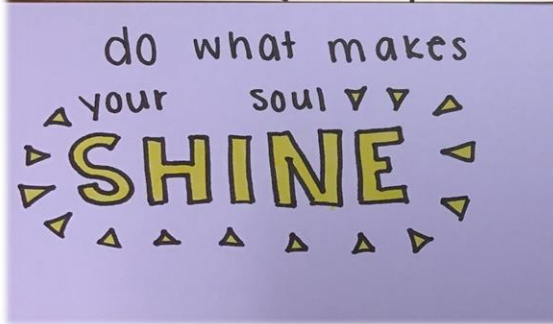 do what makes
your soul
SHINE